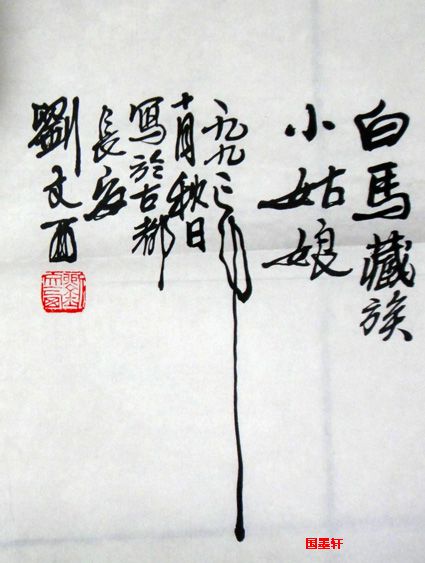 白馬藏族
小姑娘
一九九二年
十月秋日
寫於古都
長安
劉文西
國墨轩